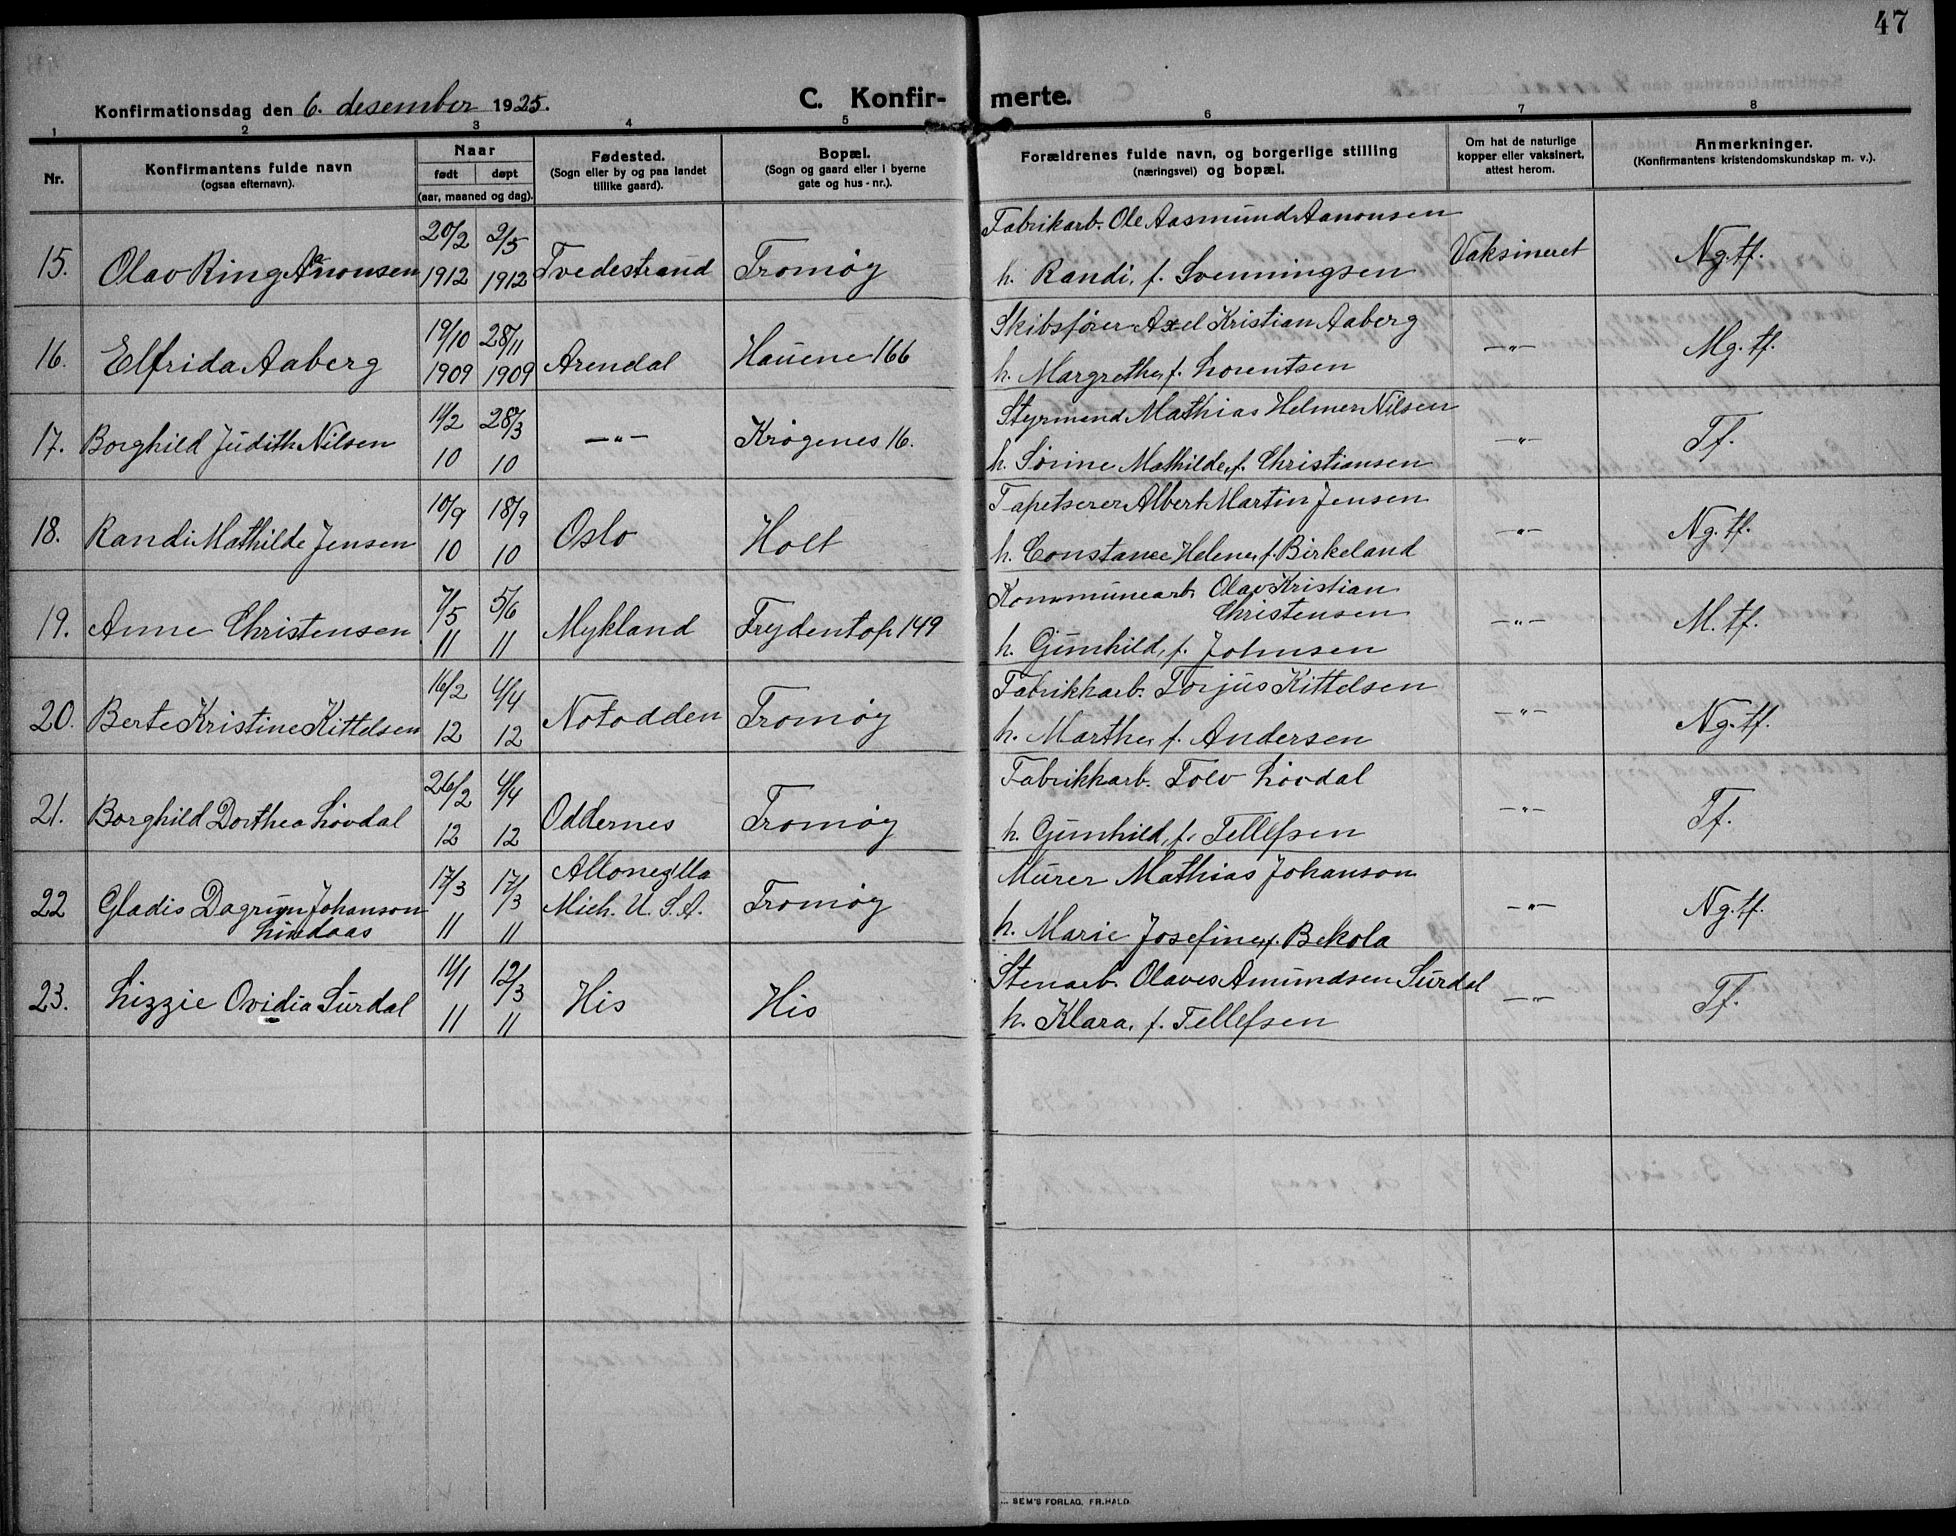 47
Konfirmationsdag den 6. desember 1925.
C. Konfir- merte.
1 2 3 4 5 6 7 8
Nr.
Konfirmantens fulde navn
(ogsaa efternavn).
Naar
født døpt
(aar, maaned og dag).
Fødested.
(Sogn eller by og paa landet
tillike gaard).
Bopæl.
(Sogn og gaard eller i byerne
gate og hus-nr.).
Forældrenes fulde navn, og borgerlige stilling
(næringsvei) og bopæl.
Om hat de naturlige
kopper eller vaksinert,
attest herom.
Anmerkninger.
(Konfirmantens kristendomskundskap m. v.).
20/2 2/5 Fabrikarb. Ole Aasmund Aanonsen
15. Olav Ring Aanonsen 1912 1912 Tvedestrand Tromøy h. Randi, f. Svenningsen Vaksineret Ng. tf.
19/10 28/11 Skibsfører Axel Kristian Aaberg
16. Elfrida Aaberg 1909 1909 Arendal Hauene 166 h. Margrethe, f. Lorentsen —„— Mg. tf.
11/2 28/3 Styrmend Mathias Helmer Nilsen
17. Borghild Judith Nilsen 10 10 —„— Krøgenes 16. h. Sørine Mathilde, f. Christiansen —„— Tf.
10/9 18/9 Tapetserer Albert Martin Jensen
18. Randi Mathilde Jensen 10 10 Oslo Holt h. Constance Helene, f. Birkeland —„— Ng. tf.
7/5 5/6 Kommunearb. Olav Kristian
Christensen
19. Anne Christensen 11 11 Mykland Frydentop 149 h. Gunhild, f. Johnsen —„— M. tf.
16/2 4/4 Fabrikkarb. Torjus Kittelsen
20. Berte Kristine Kittelsen 12 12 Notodden Tromøy h. Marthe, f. Andersen —„— Ng. tf.
26/2 4/4 Fabrikkarb. Tolv Løvdal
21. Borghild Dorthea Løvdal 12 12 Oddernes Tromøy h. Gunhild, f. Tellefsen —„— Tf.
17/3 17/3 Murer Mathias Johanson
22 Gladis Dagrun Johanson 11 11 Mich. U. S. A. Tromøy h. Marie Josefine, f. Bekola —„— Ng. tf.
Lindaas
11/1 12/3 Stenarb. Olaves Amundsen Surdal
23. Lizzie Ovidia Surdal 11 11 His His h. Klara, f. Tellefsen —„— Tf.
SEM'S FORLAG, FR.HALD.